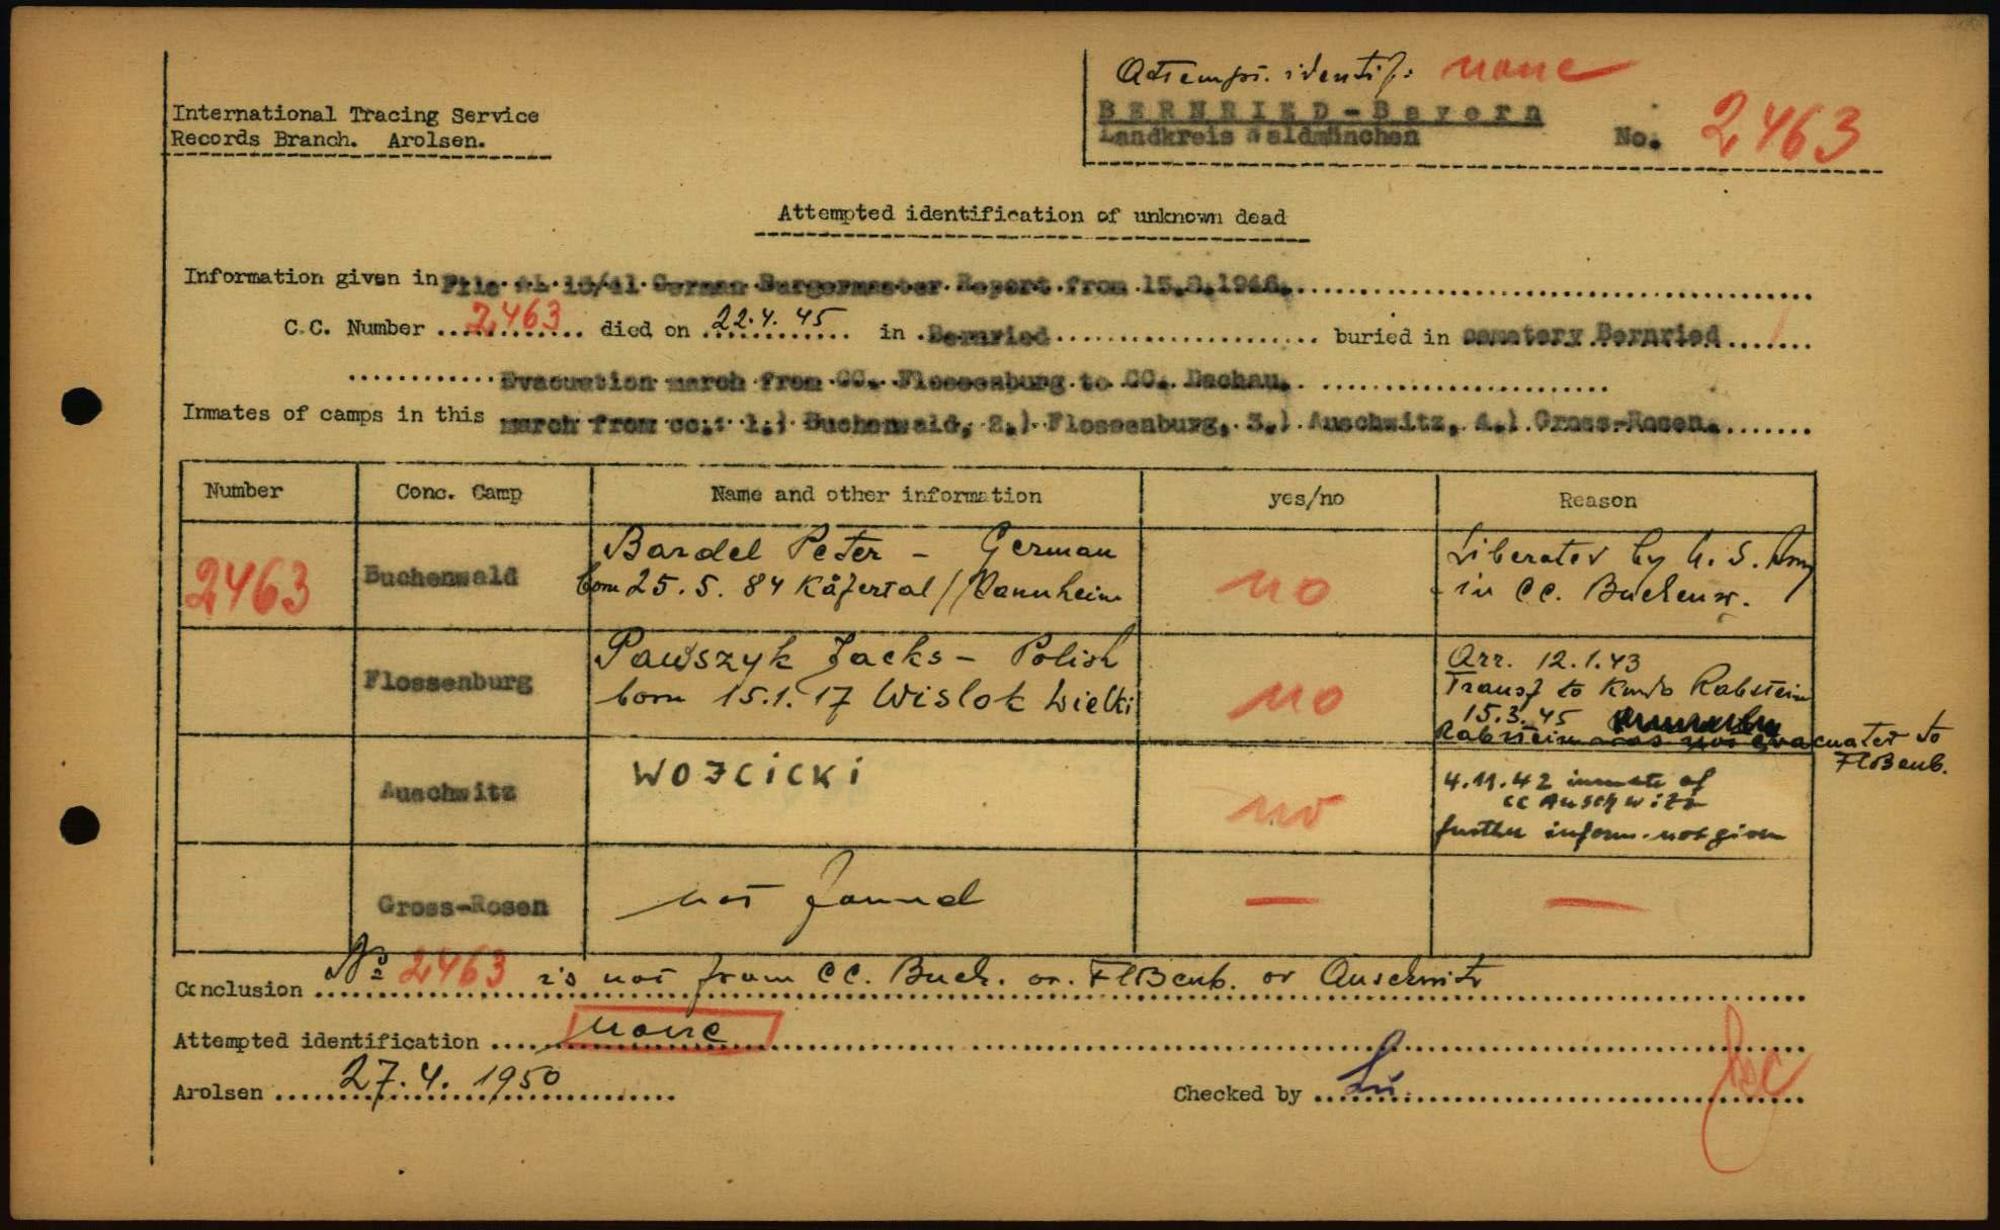 Attempt. identif: none
International Tracing Service
Records Branch. Arolsen.
BERNRIED-Bayern
Landkreis Waldmünchen No. 2463
Attempted identification of unknown dead
Information given in File German Burgermaster Report from
C.C. Number 2463 died on 22.4.45 in Bernried buried in cemetery Bernried
Evacuation march from CC. Flossenburg to CC. Dachau.
Inmates of camps in this march from cc.: 1.) Buchenwald, 2.) Flossenburg, 3.) Auschwitz, 4.) Gross-Rosen.
Number Conc. Camp Name and other information yes/no Reason
2463 Buchenwald Bardel Peter - German
born 25.5.84 Käfertal/Mannheim no Liberated by U.S. Army
in CC. Buchenw.
Flossenburg Pawszyk Jacks - Polish
born 15.1.17 Wislok Wielki no Arr. 12.1.43
Transf to Kmdo Rabstein
15.3.45
Rabstein was not evacuated to
Floßenb.
Auschwitz WOJCICKI no 4.11.42 inmate of
CC Auschwitz
further inform. not given
Gross-Rosen not found — —
Conclusion No 2463 is not from CC. Buch. or. Floßenb. or Auschwitz
Attempted identification none
Arolsen 27.4.1950 Checked by